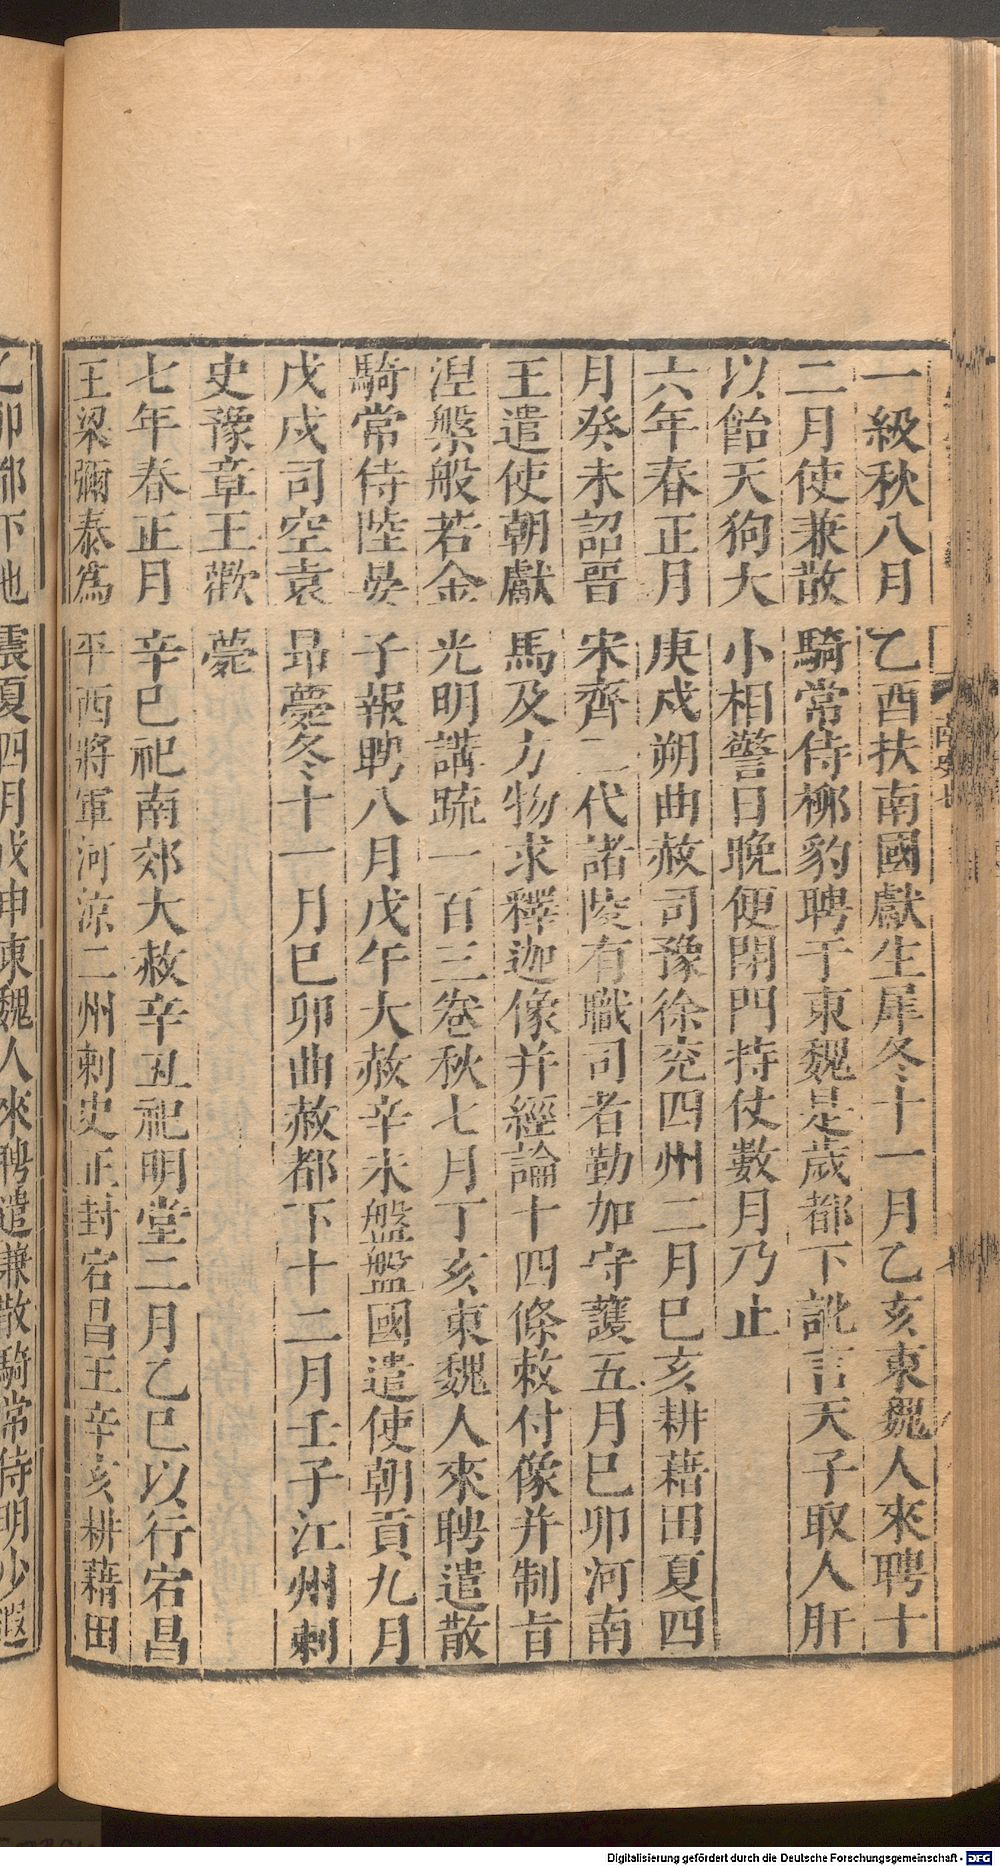 一級秋八月乙酉扶南國獻生犀冬十一月乙亥東魏人來聘十
二月使兼散騎常侍柳豹聘于東魏是歲都下訛言天子取人肝
以飴天狗大小相警日晚便閉門持仗數月乃止
六年春正月庚戌朔曲赦司豫徐兗四州二月巳亥耕藉田夏四
月癸未詔晉宋齊二代諸陵有職司者勤加守護五月巳卯河南
王遣使朝獻馬及方物求釋迦像并經論十四條敕付像并制旨
涅槃般若金光明講疏一百三卷秋七月丁亥東魏人來聘遣散
騎常侍陸晏子報聘八月戊午大赦辛未盤盤國遣使朝貢九月
戊戌司空袁昻薨冬十一月巳卯曲赦都下十二月壬子江州刺
史豫章王歡薨
七年春正月辛巳祀南郊大赦辛丑祀明堂二月乙巳以行宕昌
王梁彌泰爲平西將軍河涼二州刺史正封宕昌王辛亥耕藉田
乙卯都下地震夏四月戊申東魏人來聘遣兼散騎常侍明少遐
南史七
Digitalisierung gefördert durch die Deutsche Forschungsgemeinschaft - DFG